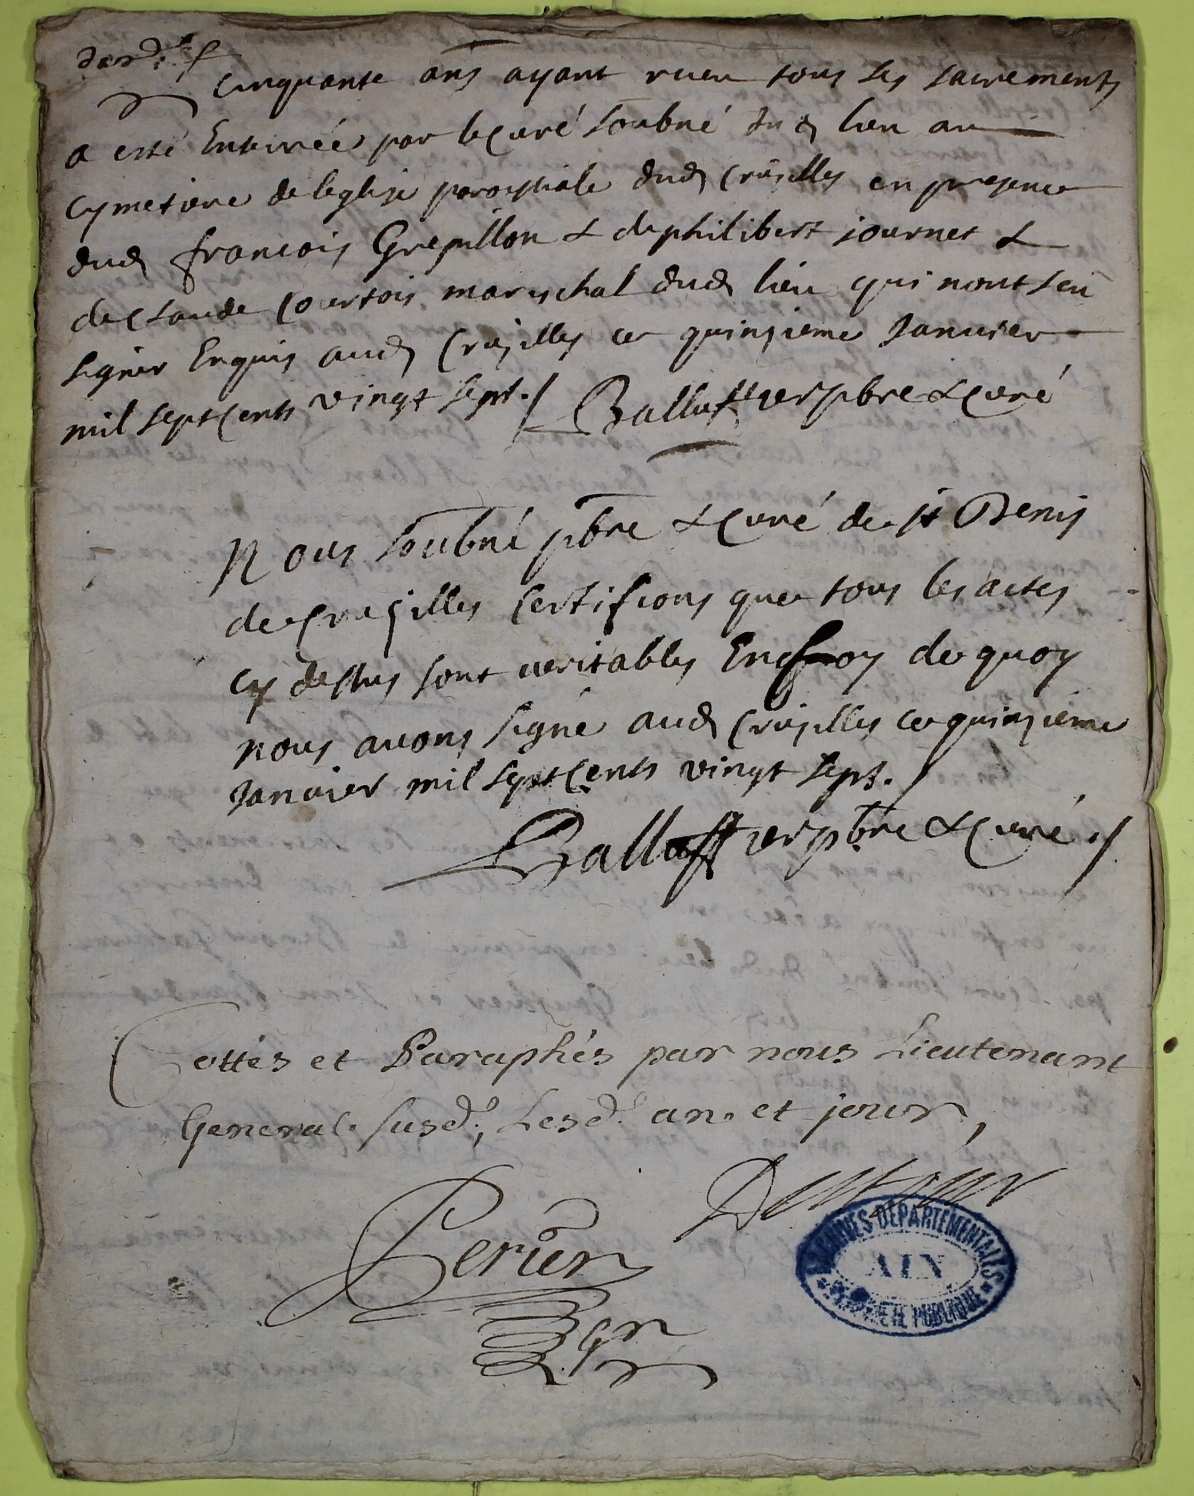 cinquante ans ayant receu tous les sacrements
a esté Enterrée par le Curé soubné dud lieu au
cymetiere de leglise parosphiale dud Crusilles en presence
dud francois Grepillon & de philibert journet &
de Claude Courtois mareschal dud lieu qui nont seu
signer Enquis aud Crusilles ce quinzieme Januier
mil sept Cents vingt sept./ Balluffier pbre & Curé
Nous soubné pbre & Curé de st Denis
de Crusilles certifions que tous les actes
cy dessus sont veritables En foy de quoy
nous auons signé aud Crusilles ce quinzieme
Januier mil sept Cents vingt sept./
Balluffier pbre & Curé ./
Cottés et Paraphés par nous Lieutenant
General susd., Lesd. an et jour,
Perier
ARCHIVES DÉPARTEMENTALES
AIN
PROPRIÉTÉ PUBLIQUE